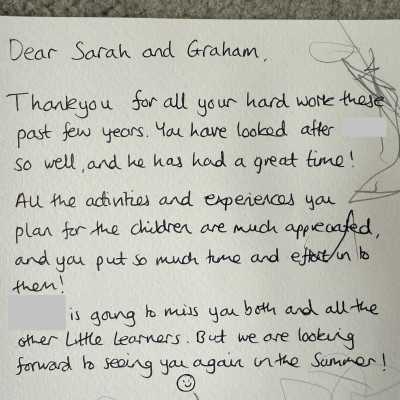 Dear Sarah and Graham,
Thankyou for all your hard work these
past few years. You have looked after
so well, and he has had a great time!
All the activities and experiences you
plan for the children are much appreciated,
and you put so much time and effort in to
them!
is going to miss you both and all the
other Little Learners. But we are looking
forward to seeing you again in the Summer!